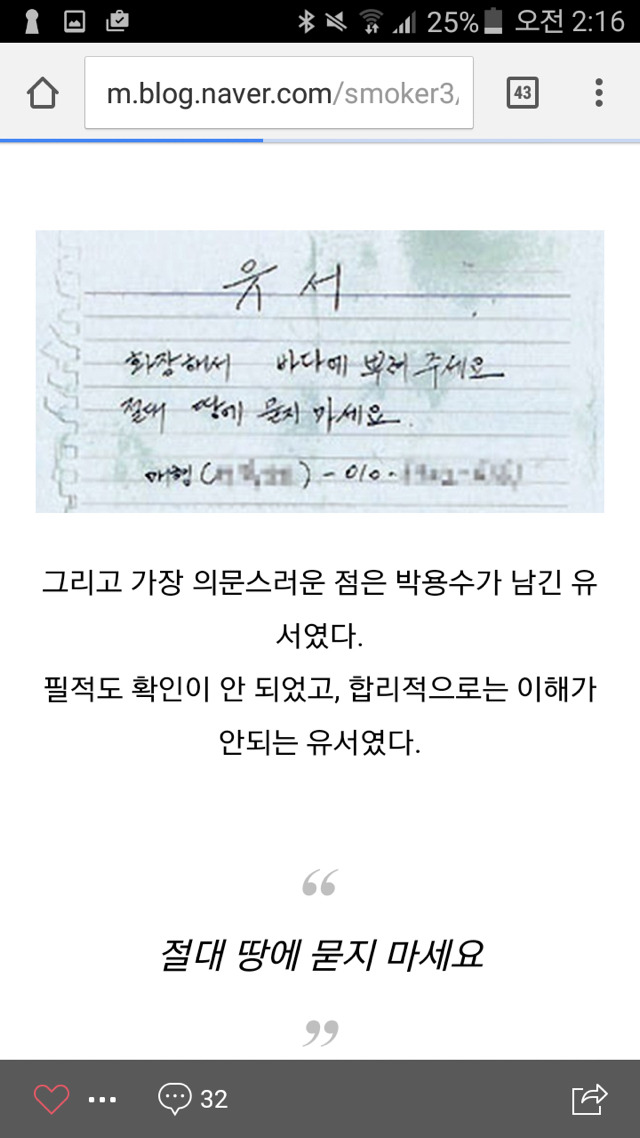 25% 오전 2:16
m.blog.naver.com/smoker3/
43
유서
화장해서 바다에 뿌려 주세요
절대 땅에 묻지 마세요.
매형 ( ) - 010 -
그리고 가장 의문스러운 점은 박용수가 남긴 유
서였다.
필적도 확인이 안 되었고, 합리적으로는 이해가
안되는 유서였다.
“
절대 땅에 묻지 마세요
”
32